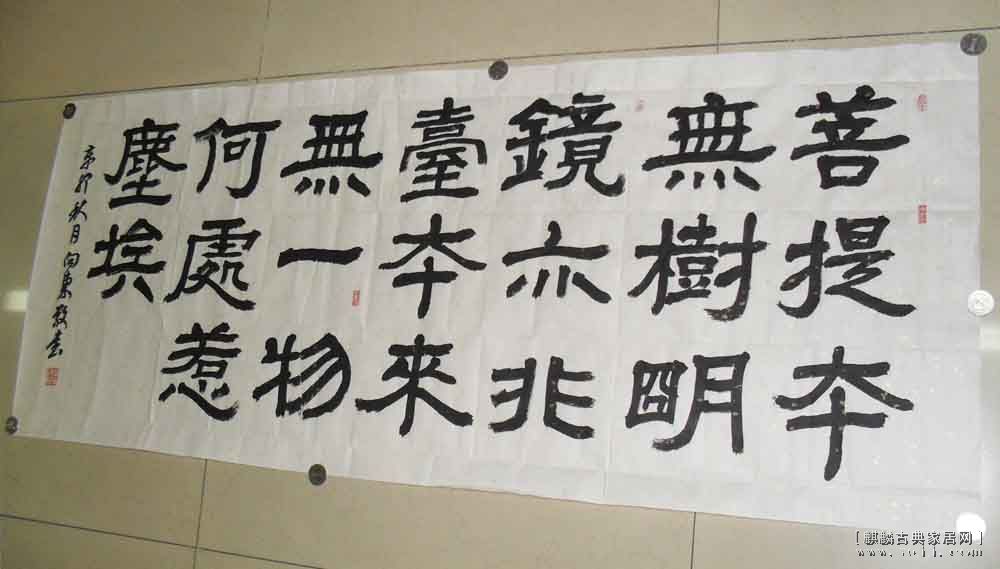 菩提本
無樹明
鏡亦非
臺本來
無一物
何處惹
塵埃
辛卯秋月向東敬書
［麒麟古典家居网］